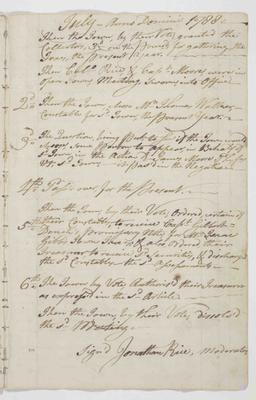 July — Anno Domini 1788 —
Then the Town, by their Vote, granted the
Collector, on the Pound for gathering the
Taxes, the Present Year.
Then Coll.o Rice & Cap.t Morse were
open Town Meeting Sworn into Office
2.d Then the Town chose Mr. Thomas Walker
Constable for S.d Town, the Present Year.
3.d The Question being Put to the Town
Chose Some Person to appear in Behalf of
S.d Town, in the Action James Morse
vs. S.d Town — it Past in the Negative
4th Past over for the Present —
Then the Town by their Vote, Ordered
5th their Constable, to receive Cap.t
Promissory Note, for
Town Tax & also ordered their
Treasurer to receive S.d Securities, & discharge
the S.d Constable the S.d
6th The Town by Vote Authoris'd their Treasurer
as expressed in the S.d Article —
Then the Town, by their Vote, dissolv'd
the S.d Meeting.
Sign'd Jonathan Rice, Moderator